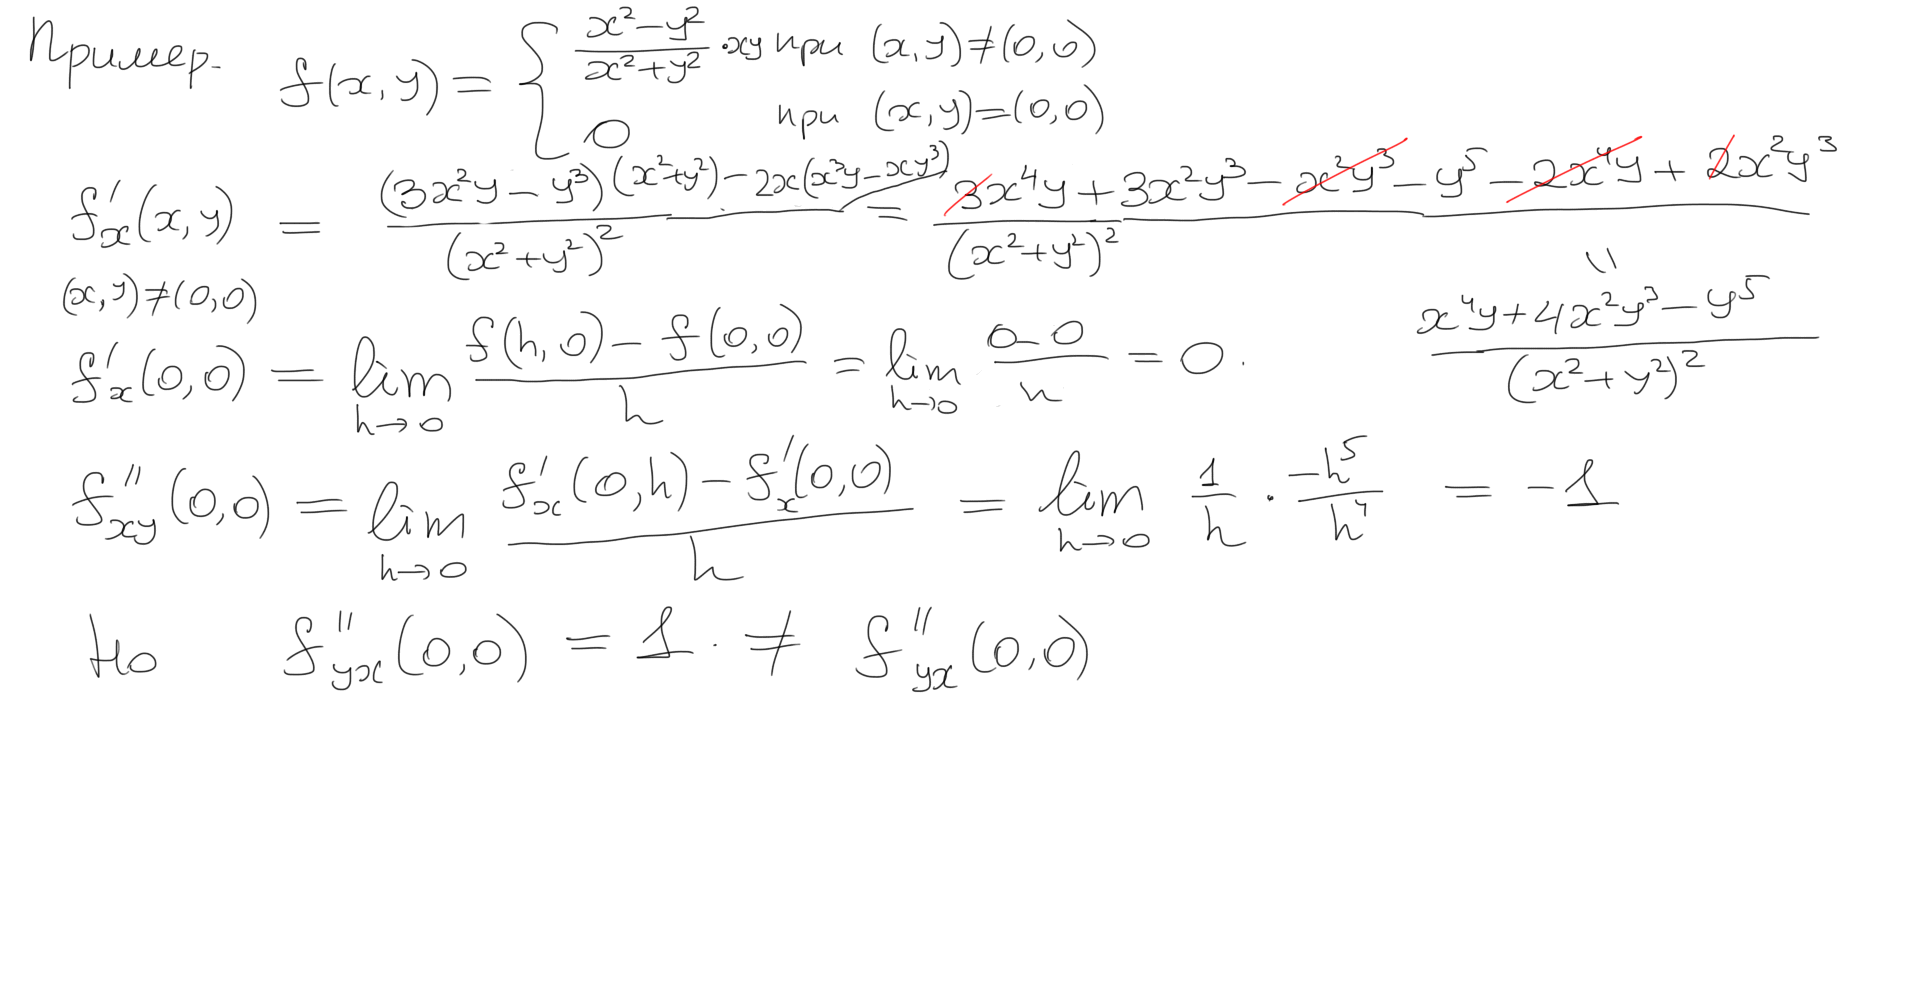 Пример. f(x, y) = { \frac{x^2-y^2}{x^2+y^2} \cdot xy при (x,y) ≠ (0,0)
0 при (x,y)=(0,0)
f'_x(x,y) = \frac{(3x^2y - y^3)(x^2+y^2) - 2x(x^3y - xy^3)}{(x^2+y^2)^2} = \frac{3x^4y + 3x^2y^3 - x^2y^3 - y^5 - 2x^4y + 2x^2y^3}{(x^2+y^2)^2}
(x,y) ≠ (0,0)
=
\frac{x^4y + 4x^2y^3 - y^5}{(x^2+y^2)^2}
f'_x(0,0) = \lim_{h→0} \frac{f(h,0) - f(0,0)}{h} = \lim_{h→0} \frac{0-0}{h} = 0.
f''_{xy}(0,0) = \lim_{h→0} \frac{f'_x(0,h) - f'_x(0,0)}{h} = \lim_{h→0} \frac{1}{h} \cdot \frac{-h^5}{h^4} = -1
Но f''_{yx}(0,0) = 1. ≠ f''_{yx}(0,0)